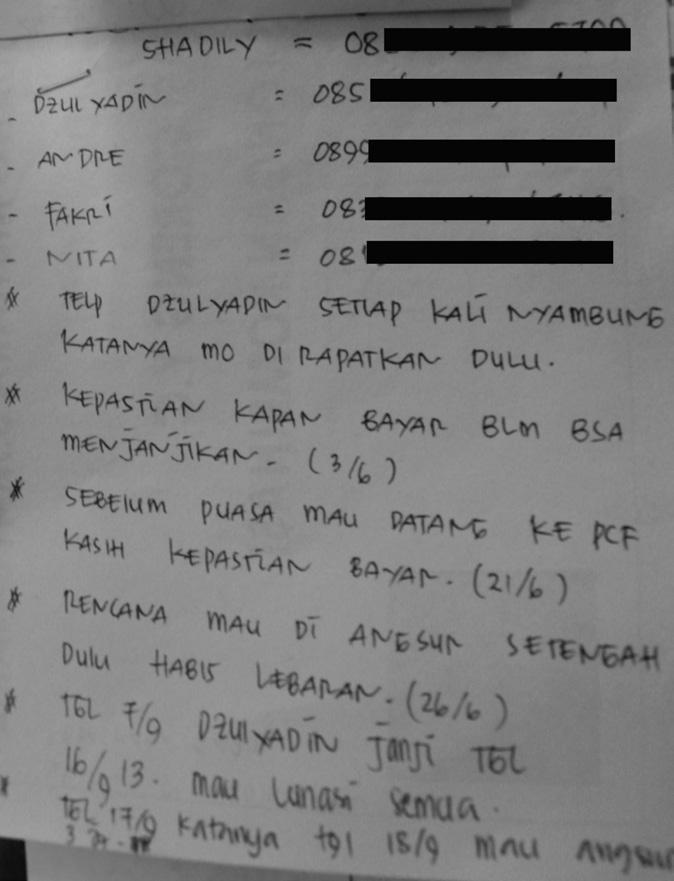 SHADILY = 08
- DZULYADIN = 085
- ANDRE = 0899
- FAKRI = 08
- NITA = 08
* TELP DZULYADIN SETIAP KALI NYAMBUNG
KATANYA MO DI RAPATKAN DULU.
* KEPASTIAN KAPAN BAYAR BLM BSA
MENJANJIKAN. (3/6)
* SEBELUM PUASA MAU DATANG KE PCF
KASIH KEPASTIAN BAYAR. (21/6)
* RENCANA MAU DI ANGSUR SETENGAH
DULU HABIS LEBARAN. (26/6)
* TGL 7/9 DZULYADIN JANJI TGL
16/9 13. MAU LUNASI SEMUA.
* TGL 17/9 KATANYA TGL 18/9 MAU ANGSUR